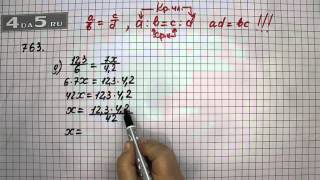 4 DA 5 RU
a/b = c/d , a : b = c : d    ad = bc !!!
763.
12,3/6 = 7x/4,2
6·7x = 12,3·4,2
42x = 12,3·4,2
x = 12,3·4,2/42
x =